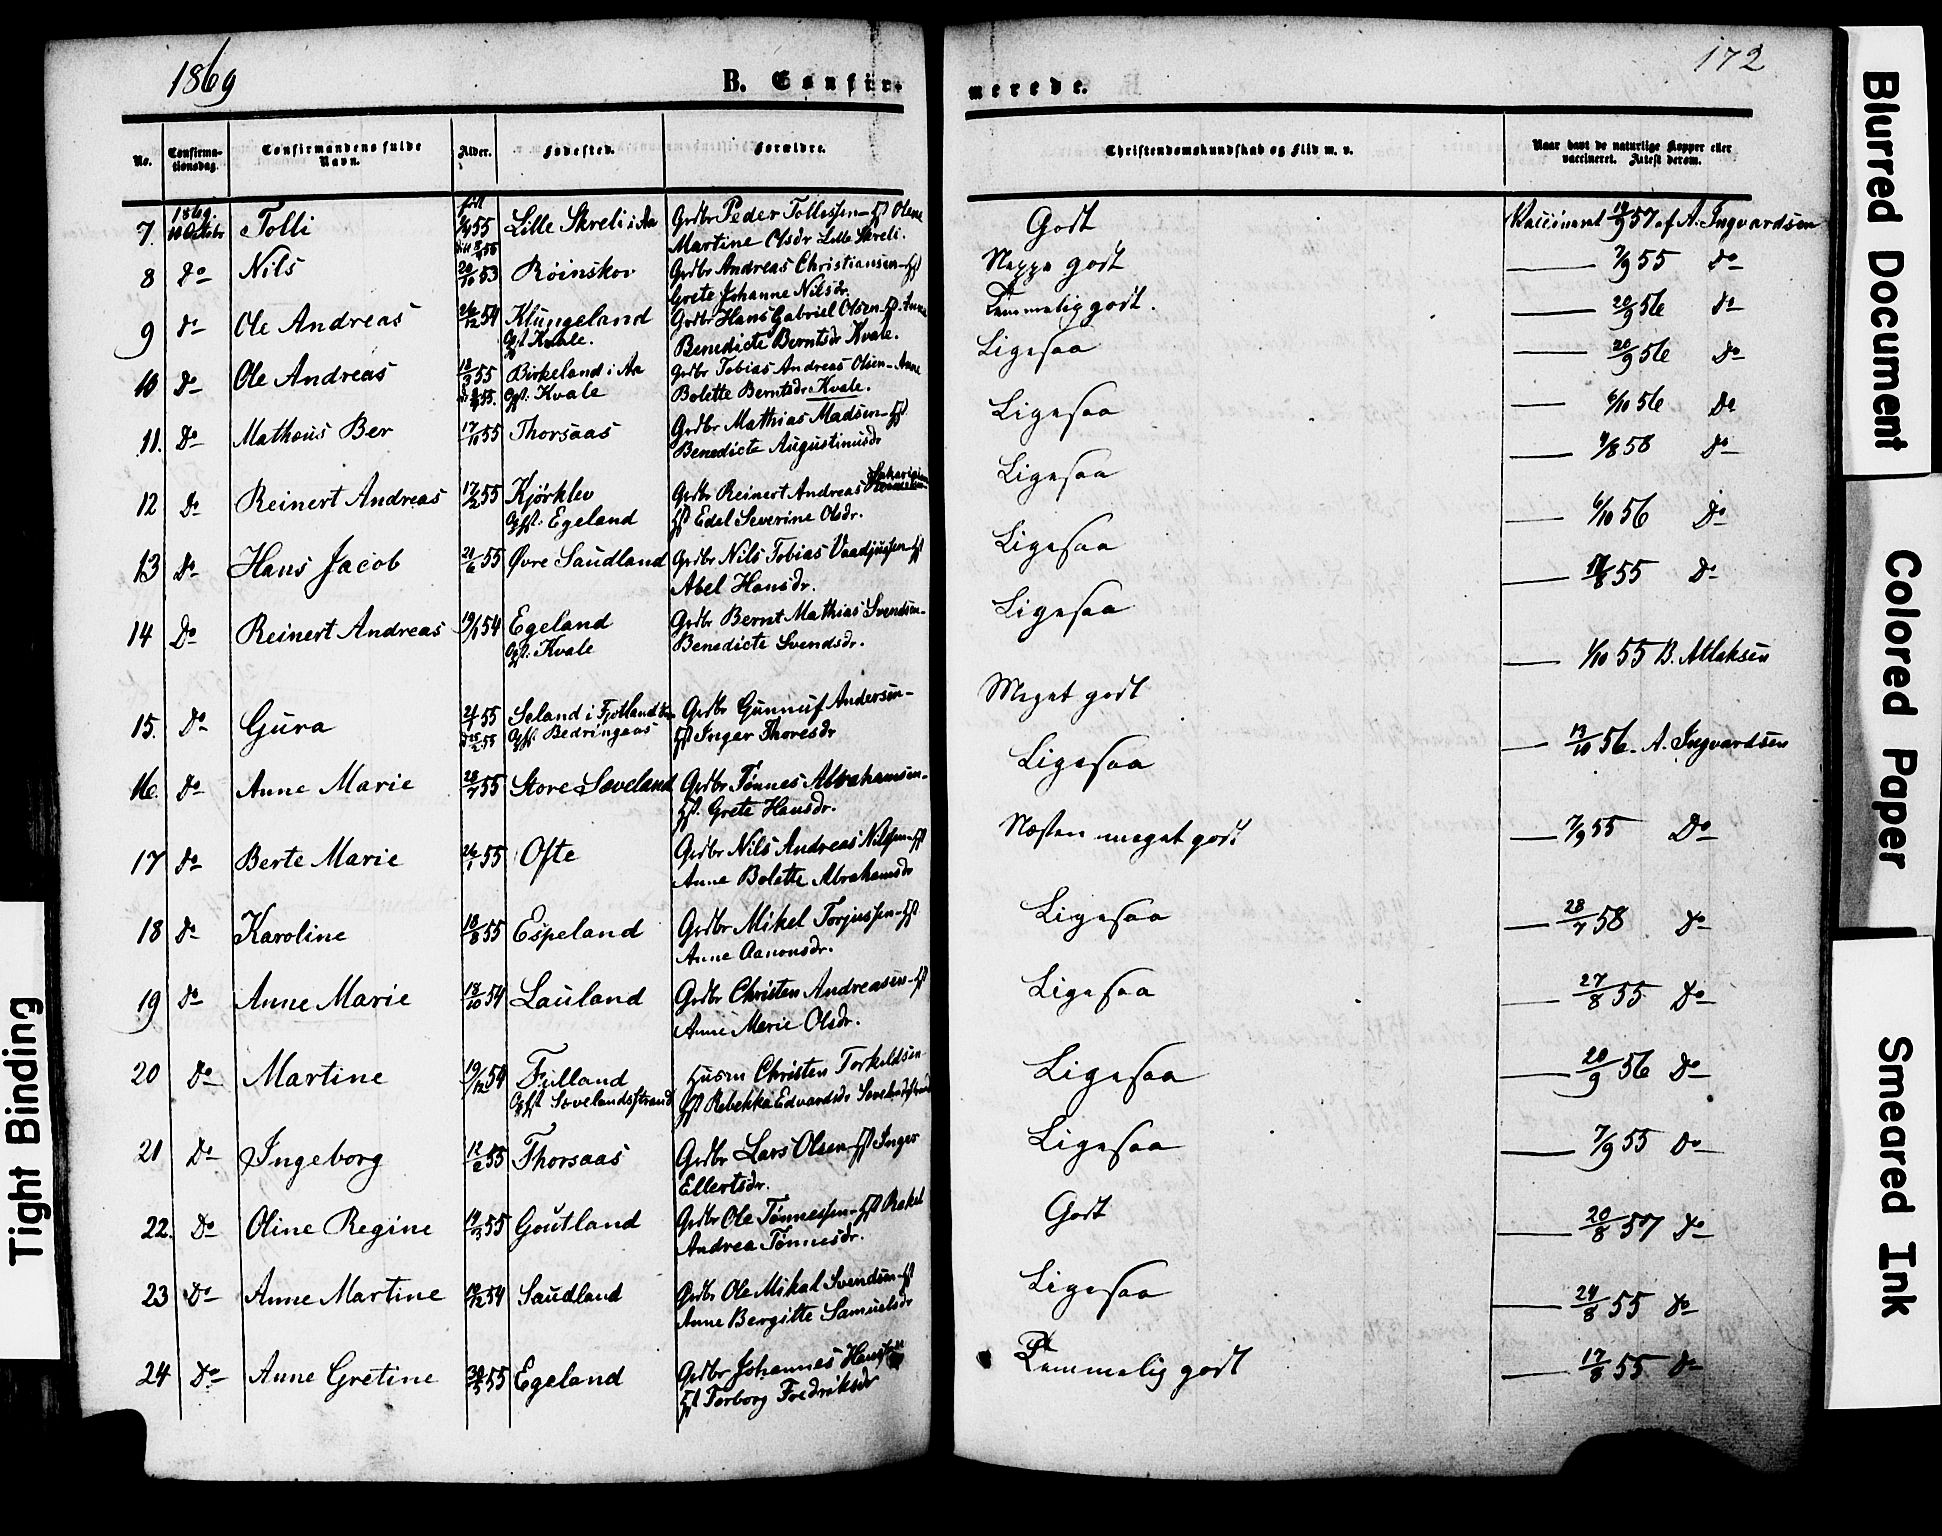 1869
B. Confir-
merede.
172
No.
Confirma-
tionsdag.
Confirmandens fulde
Navn.
Alder.
Fødested.
Forældre.
Christendomskundskab og Flid m. v.
Naar havt de naturlige Kopper eller
vaccineret. Attest derom.
7. 1869. Tolli født 55 Lille Skreli i Aa Grdbr Peder Tollessen - Hst Olene
Martine Olsdr Lille Skreli.
Godt Vaccineret 57 af A. Ingvardsen
8 Do Nils 20/10 53 Röinskov Grdbr Andreas Christiansen - Hst
Grete Johanne Nilsdr.
Neppe godt 7/9 55 Do
9 Do Ole Andreas 26/12 54 Klungeland Grdbr Hans Gabriel Olsen - Hst. Anne
Opf. Kvale. Benedicte Berntsdr Kvale.
Temmelig godt. 20/9 56 Do
10 Do Ole Andreas 18/3 55 Birkeland i Aa Grdbr Tobias Andreas Olsen - Anne
Opf. Kvale Bolette Berntsdr Kvale.
Ligesaa 20/9 56 Do
11. Do Matheus Ber 17/10 55 Thorsaas Grdbr Mathias Madsen - Hst
Benedicte Augustinusdr
Ligesaa 6/10 56 Do
12 Do Reinert Andreas 17/2 55 Kjörklev Grdbr Reinert Andreas
Opf. Egeland Hst Edel Severine Olsdr.
Ligesaa 4/8 58 Do
13 Do Hans Jacob 21/6 55 Øvre Saudland Grdbr Nils Tobias - Hst
Abel Hansdr.
Ligesaa 6/10 56 Do
14 Do Reinert Andreas 54 Egeland Grdbr Bernt Mathias Svendsen -
Opf. Kvale Benedicte Svendsdr.
Ligesaa 55 Do
15. Do Gura 55 Seland i Fjotland Grdbr Gunnuf Andersen -
Opf. Bedringaas Hst Inger Thoresdr
Meget godt 1/10 55 B. Atlaksen
16. Do Anne Marie 28/7 55 Store Sæveland Grdbr Tönnes Abrahamsen -
Hst. Grete Hansdr.
Ligesaa 13/10 56. A. Ingvardsen
17 Do Berte Marie 26/7 55 Ofte Grdbr Nils Andreas Nilssen - Hst
Anne Bolette Abrahamsdr
Næsten meget godt 7/9 55 Do
18 Do Karoline 18/8 55 Espeland Grdbr Mikel Torjussen - Hst
Anne Aanonsdr.
Ligesaa 28/7 58 Do
19 Do Anne Marie 18/10 54 Lauland Grdbr Christen Andreasen - Hst
Anne Marie Olsdr.
Ligesaa 27/8 55 Do
20 Do Martine 19/12 54 Fulland Husm Christen Torkeldsen
Opf. Sævelandsstrand Hst Rebekka Edvardsdr
Ligesaa 20/9 56 Do
21 Do Ingeborg 12/2 55 Thorsaas Grdbr Lars Olsen - Hst Inger
Ellertsdr.
Ligesaa 7/9 55 Do
22. Do Oline Regine 55 Goutland Grdbr Ole Tönnessen - Hst Rakel
Andrea Tönnesdr.
Godt 20/8 57 Do
23 Do Anne Martine 54 Saudland Grdbr Ole Mikal Svendsen - Hst
Anne Bergitte Samuelsdr
Ligesaa 24/8 55 Do
24 Do Anne Gretine 55 Egeland Grdbr Johannes
Hst Torborg Fredriksdr
Temmelig godt 17/8 55 Do
Tight Binding
Blurred Document
Colored Paper
Smeared Ink